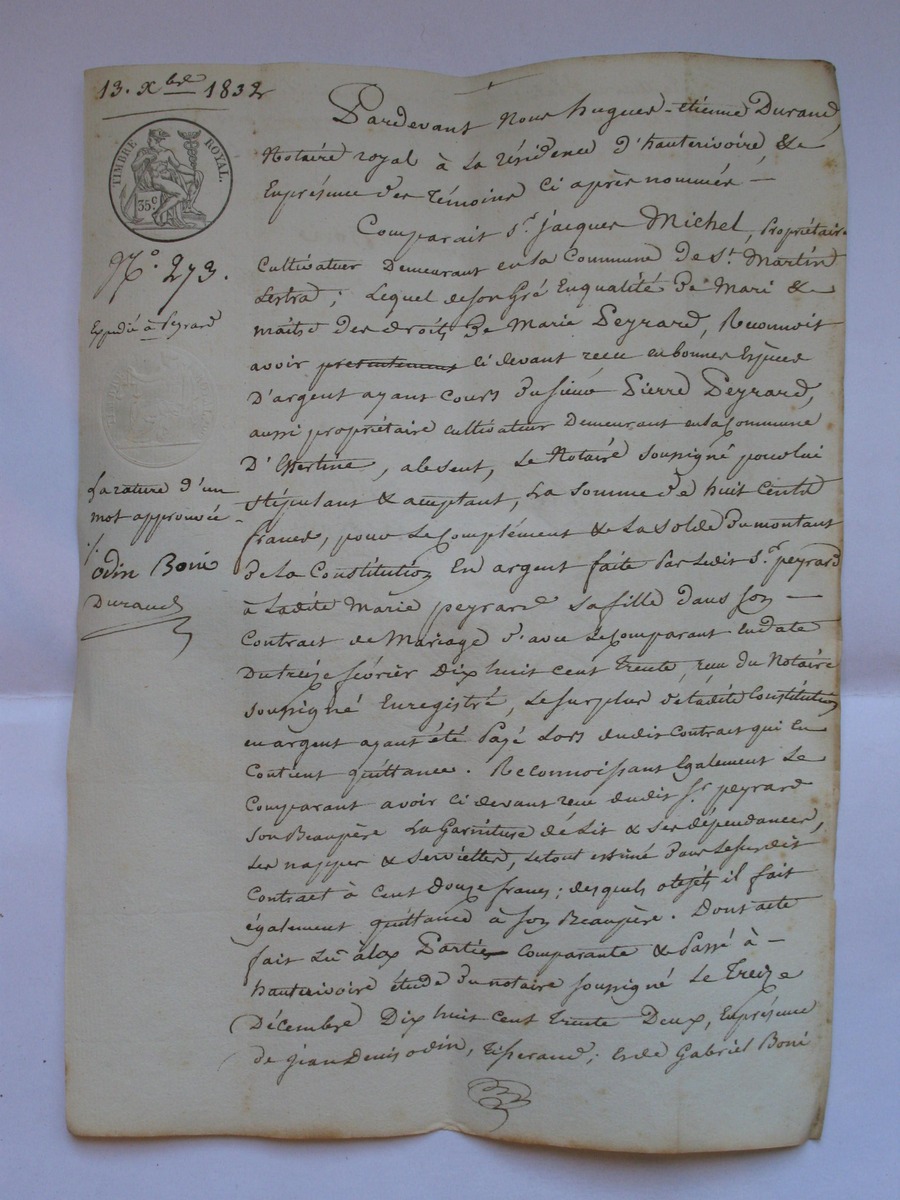 13. Xbre 1832
TIMBRE ROYAL.
35 c.
N.o 273.
Expédié à Peyrard
La rature d'un
mot approuvée
./.
odin Boni
Durand
Pardevant Nous hugues-étienne Durand,
Notaire royal à La résidence d'hauterivoire, & e
Enprésence des témoins Ci après nommés —
Comparait Sr. jacques Michel, Propriétaire
Cultivateur Demeurant en la Commune de St. Martin
Lestra; Lequel de son Gré Enqualité De Mari &
maître des droits De Marie Peyrard, Reconnoit
avoir presentement ci devant reçu en bonnes Espèces
D'argent ayant Cours Du sieur Pierre Peyrard,
aussi propriétaire cultivateur Demeurant en la Commune
D'Essertine, absent, Le Notaire soussigné pour lui
Stipulant & acceptant, La somme De huit Cents
francs, pour Le Complément & La Solde Du montant
De La Constitution En argent faite Par Ledit Sr. peyrard
à Ladite Marie peyrard sa fille dans son —
Contract de Mariage d'avec Le Comparant En date
Du treize février Dix huit Cent trente, reçu du Notaire
soussigné Enregistré, Le surplus de Ladite Constitution
en argent ayant été Payé Lors dudit Contract qui En
Contient quittance. Reconnoissant Egalement Le
Comparant avoir Ci devant reçu dudit Sr. peyrard
son Beaupère La Garniture de Lit & ses dépendances,
Les nappes & serviettes, Le tout estimé Dans Le susdit
Contract à Cent Douze francs; desquels objets il fait
également quittance à son Beaupère. Dont acte
fait Lu à la Partie Comparante & Passé à —
hauterivoire étude Du notaire soussigné Le Treize
Décembre Dix huit Cent trente Deux, Enprésence
de jean Denis odin, Tisserand; En de Gabriel Boni